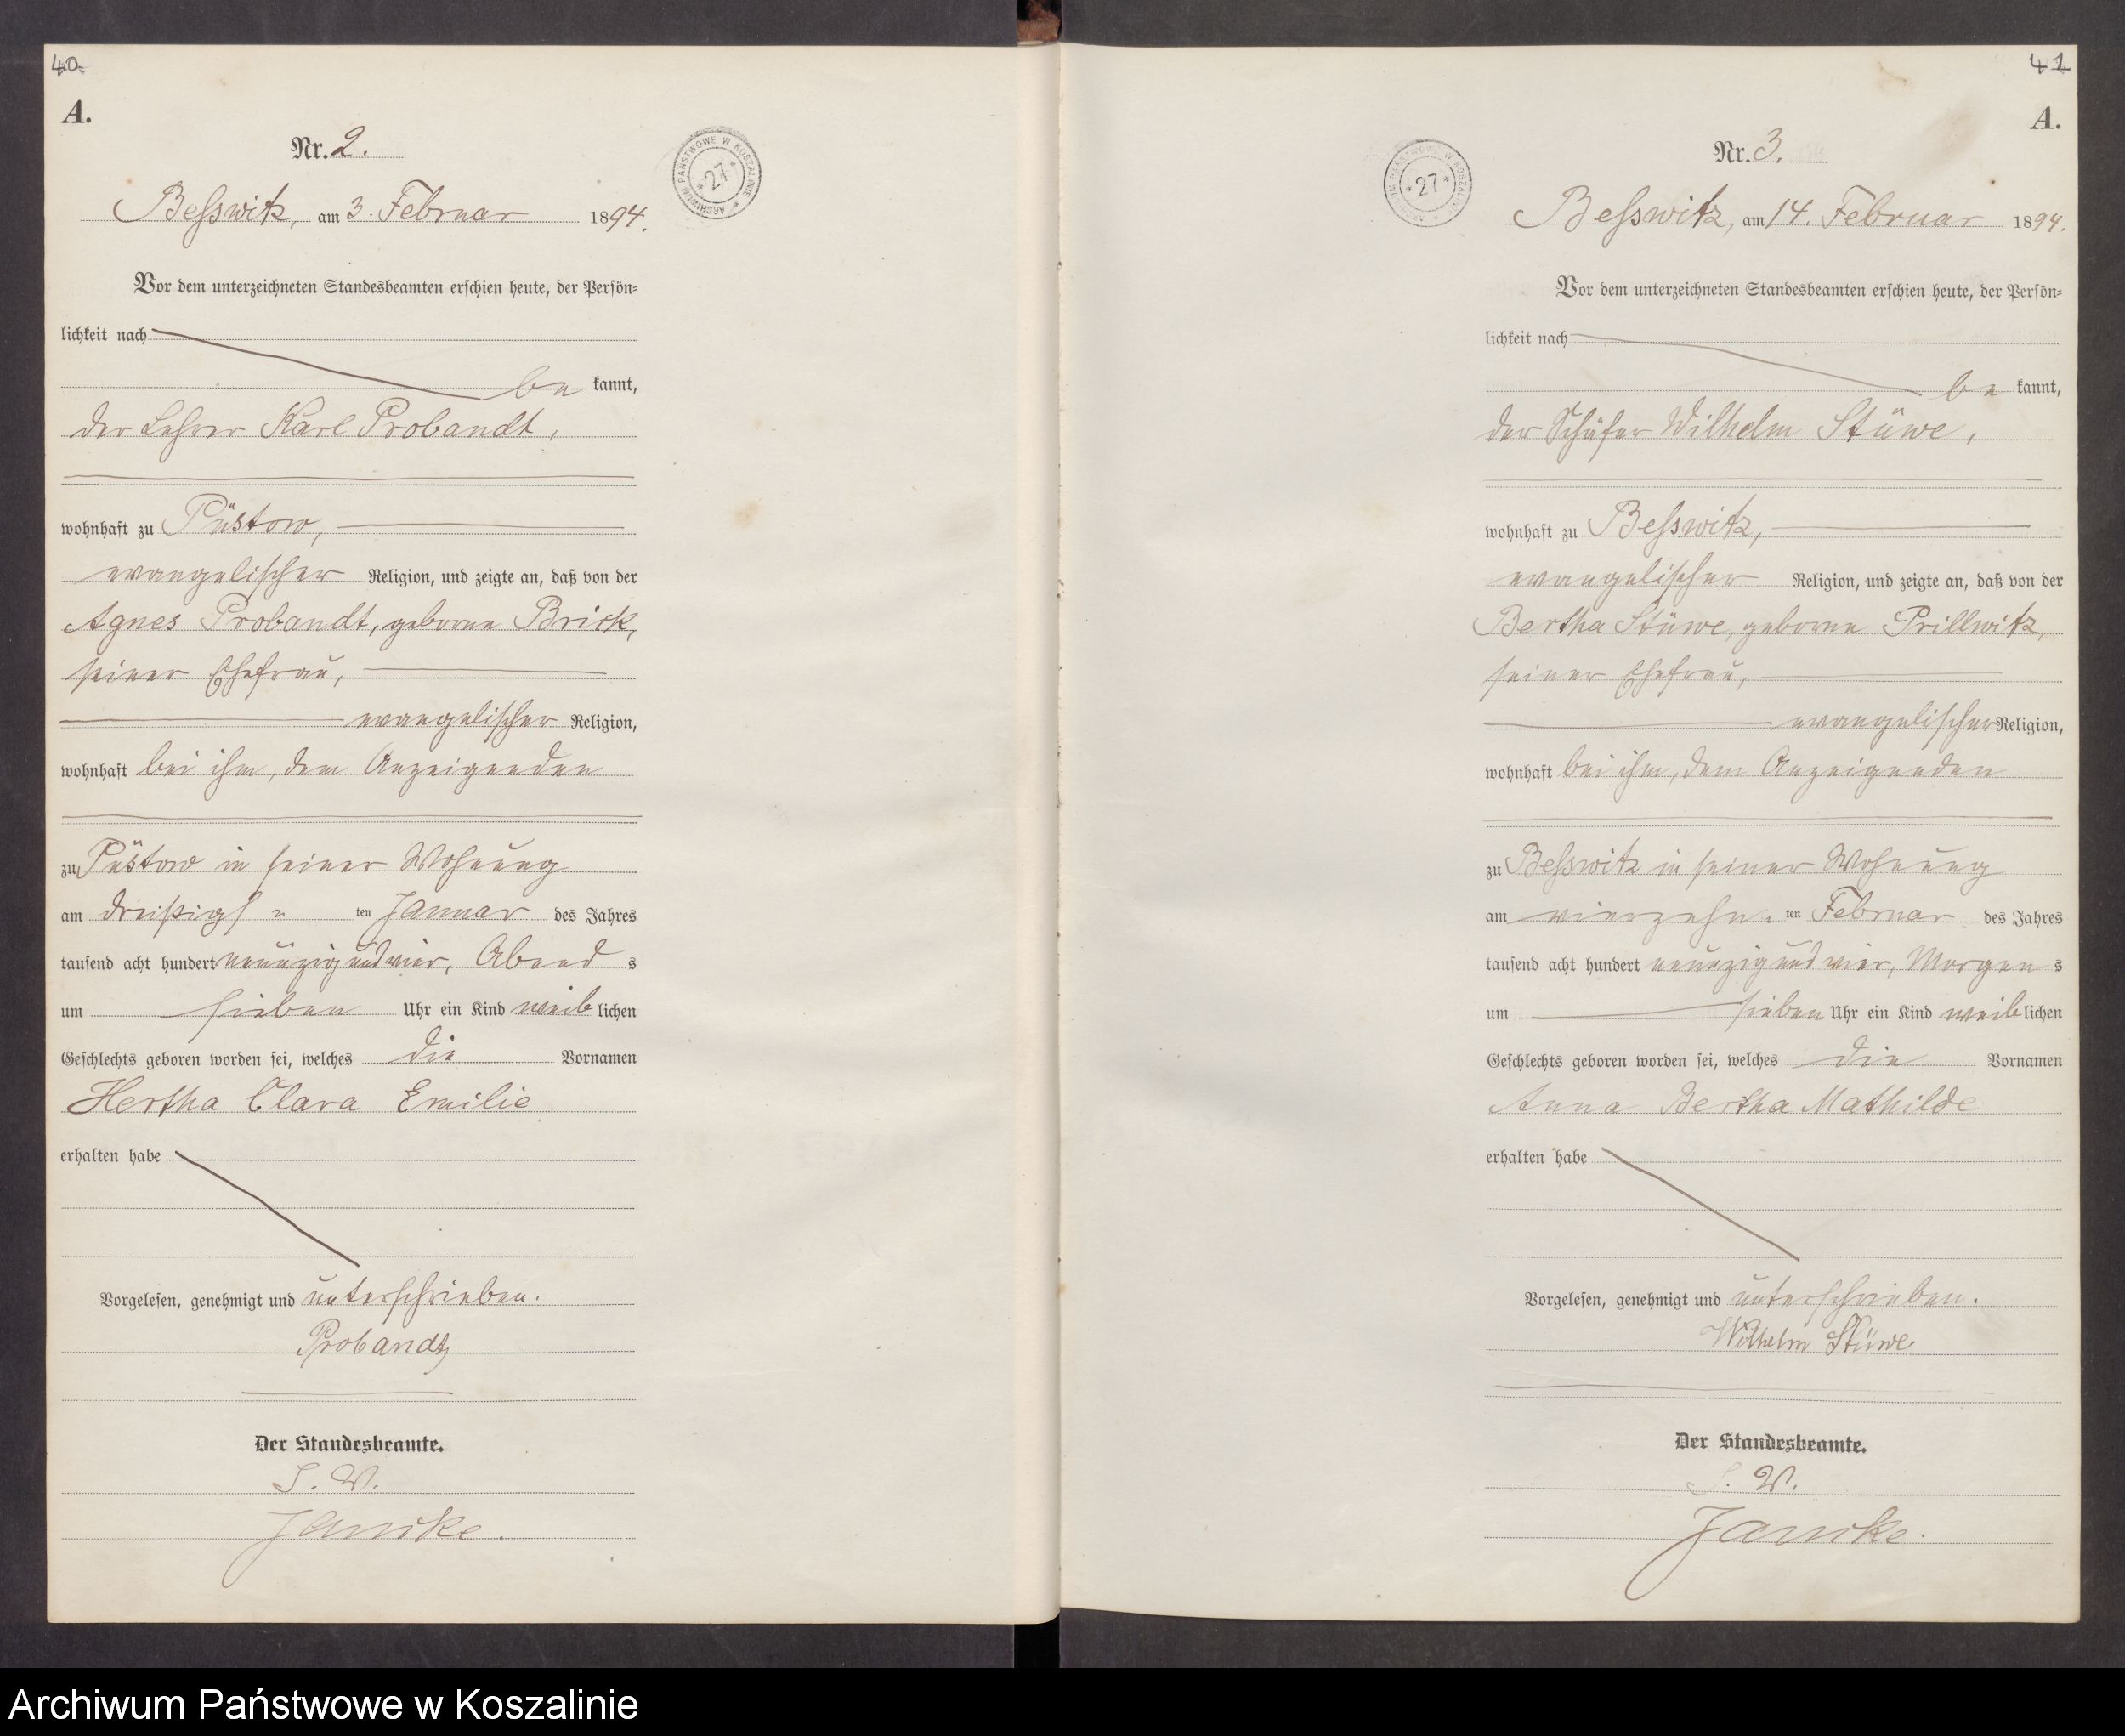 40.
A.
Nr. 2.
ARCHIWUM PAŃSTWOWE W KOSZALINIE * 27 *
Beßwitz, am 3. Februar 1894.
Vor dem unterzeichneten Standesbeamten erschien heute, der Persön-
lichkeit nach
be kannt,
der Lehrer Karl Probandt,
wohnhaft zu Püstow,
evangelischer Religion, und zeigte an, daß von der
Agnes Probandt, geborne Brick,
seiner Ehefrau,
evangelischer Religion,
wohnhaft bei ihm, dem Anzeigenden
zu Püstow in seiner Wohnung
am dreißigs ten Januar des Jahres
tausend acht hundert neunzig und vier, Abend s
um sieben Uhr ein Kind weib lichen
Geschlechts geboren worden sei, welches die Vornamen
Hertha Clara Emilie
erhalten habe
Vorgelesen, genehmigt und unterschrieben.
Probandt
Der Standesbeamte.
J. V.
Janicke.
41
A.
Nr. 3.
ARCHIWUM PAŃSTWOWE W KOSZALINIE * 27 *
Beßwitz, am 14. Februar 1894.
Vor dem unterzeichneten Standesbeamten erschien heute, der Persön-
lichkeit nach
be kannt,
der Schäfer Wilhelm Stüwe,
wohnhaft zu Beßwitz,
evangelischer Religion, und zeigte an, daß von der
Bertha Stüwe, geborne Prillwitz,
seiner Ehefrau,
evangelischer Religion,
wohnhaft bei ihm, dem Anzeigenden
zu Beßwitz in seiner Wohnung
am vierzehn ten Februar des Jahres
tausend acht hundert neunzig und vier, Morgen s
um sieben Uhr ein Kind weib lichen
Geschlechts geboren worden sei, welches die Vornamen
Anna Bertha Mathilde
erhalten habe
Vorgelesen, genehmigt und unterschrieben.
Wilhelm Stüwe
Der Standesbeamte.
J. V.
Janicke.
Archiwum Państwowe w Koszalinie